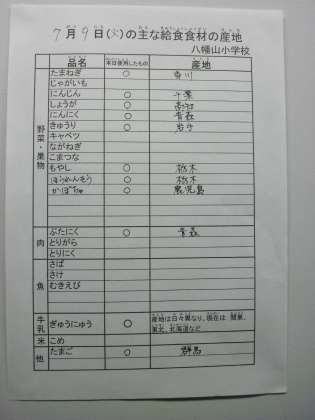 7月9日(火)の主な給食食材の産地
八幡山小学校
品名 本日使用したもの 産地
野菜・果物
たまねぎ ○ 香川
じゃがいも
にんじん ○ 千葉
しょうが ○ 高知
にんにく ○ 青森
きゅうり ○ 岩手
キャベツ
ながねぎ
こまつな
もやし ○ 栃木
ほうれんそう ○ 栃木
かぼちゃ ○ 鹿児島
肉
ぶたにく ○ 青森
とりがら
とりにく
魚
さば
さけ
むきえび
牛乳 ぎゅうにゅう ○ 産地は日々異なり、現在は 関東、
東北、北海道など
米 こめ
他 たまご ○ 群馬